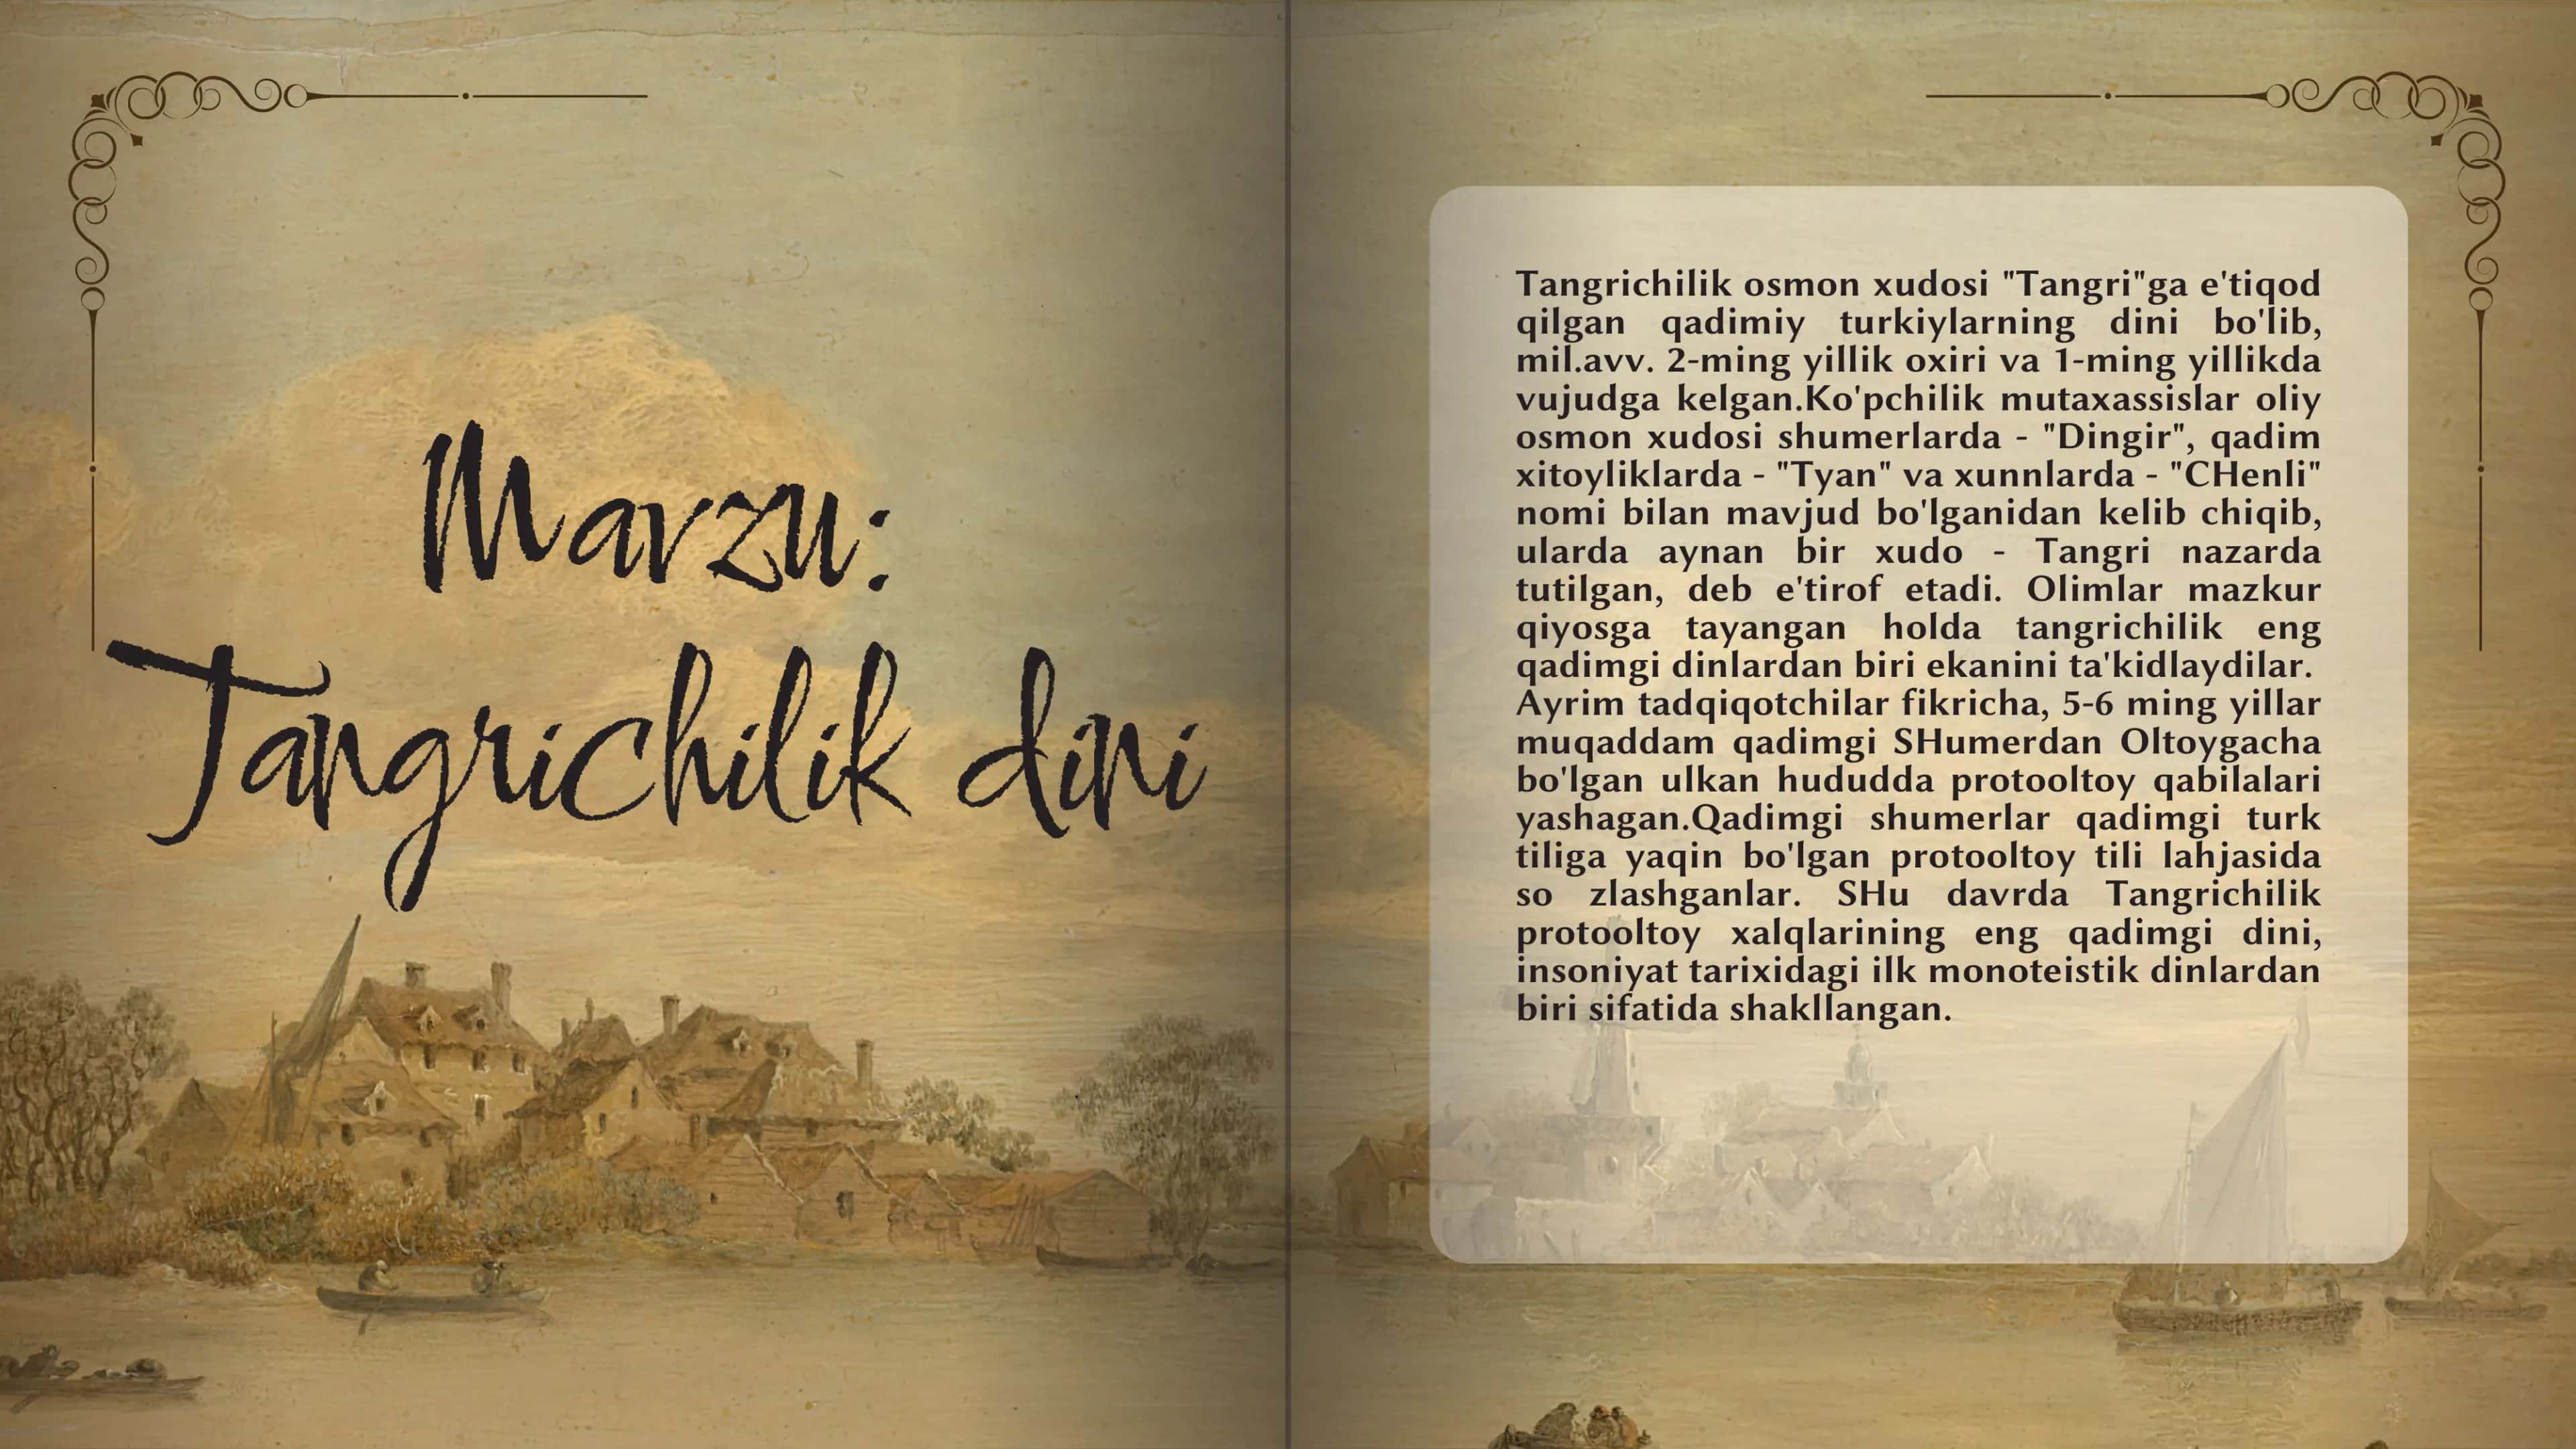 Mavzu:
Tangrichilik dini
Tangrichilik osmon xudosi "Tangri"ga e'tiqod
qilgan qadimiy turkiylarning dini bo'lib,
mil.avv. 2-ming yillik oxiri va 1-ming yillikda
vujudga kelgan.Ko'pchilik mutaxassislar oliy
osmon xudosi shumerlarda - "Dingir", qadim
xitoyliklarda - "Tyan" va xunnlarda - "CHenli"
nomi bilan mavjud bo'lganidan kelib chiqib,
ularda aynan bir xudo - Tangri nazarda
tutilgan, deb e'tirof etadi. Olimlar mazkur
qiyosga tayangan holda tangrichilik eng
qadimgi dinlardan biri ekanini ta'kidlaydilar.
Ayrim tadqiqotchilar fikricha, 5-6 ming yillar
muqaddam qadimgi SHumerdan Oltoygacha
bo'lgan ulkan hududda protooltoy qabilalari
yashagan.Qadimgi shumerlar qadimgi turk
tiliga yaqin bo'lgan protooltoy tili lahjasida
so zlashganlar. SHu davrda Tangrichilik
protooltoy xalqlarining eng qadimgi dini,
insoniyat tarixidagi ilk monoteistik dinlardan
biri sifatida shakllangan.